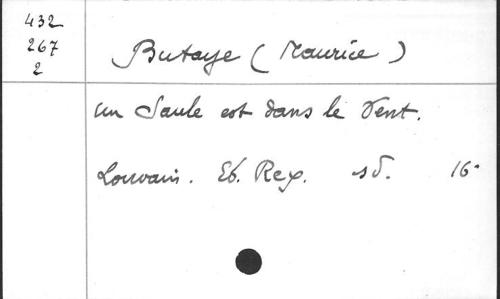 432
267
2
Butaye (Maurice)
Un Saule est dans le Vent.
Louvain. Ed. Rex. sd. 16°